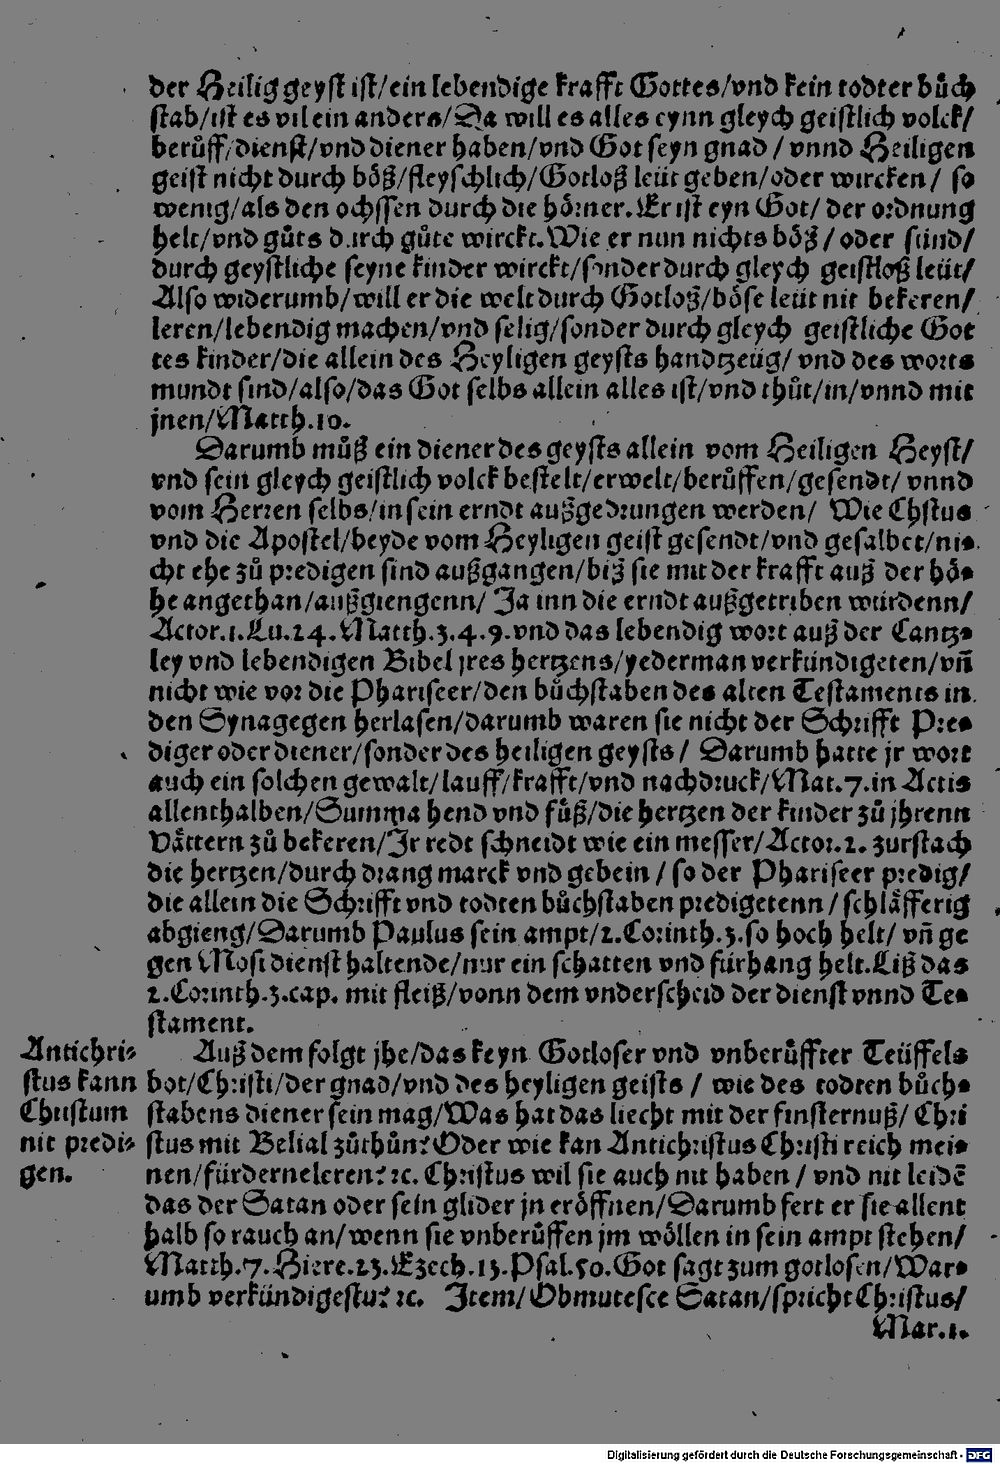 der Heilig geyst ist/ein lebendige krafft Gottes/vnd kein todter bůch
stab/ist es vil ein anders/Da will es alles eynn gleych geistlich volck/
berůff/dienst/vnd diener haben/vnd Got seyn gnad / vnnd Heiligen
geist nicht durch böß/fleyschlich/Gotloß leüt geben/oder wircken/ so
wenig/als den ochssen durch die hörner. Er ist eyn Got/ der ordnung
helt/vnd gůts durch gůte wirckt. Wie er nun nichts böß / oder sünd/
durch geystliche seyne kinder wirckt/sonder durch gleych geistloß leüt/
Also widerumb/will er die welt durch Gotloß/böse leüt nit bekeren/
leren/lebendig machen/vnd selig/sonder durch gleych geistliche Got
tes kinder/die allein des Heyligen geysts handtzeüg/ vnd des worts
mundt sind/also/das Got selbs allein alles ist/vnd thůt/in/vnnd mit
jnen/Matth.10.
Darumb můß ein diener des geysts allein vom Heiligen Heyst/
vnd sein gleych geistlich volck bestelt/erwelt/berůffen/gesendt/ vnnd
vom Herren selbs/in sein erndt außgedrungen werden/ Wie Chstus
vnd die Apostel/beyde vom Heyligen geist gesendt/vnd gesalbet/nie-
cht ehe zů predigen sind außgangen/biß sie mit der krafft auß der hö-
he angethan/außgiengenn/ Ja inn die erndt außgetriben würdenn/
Actor.1.Lu.24.Matth.3.4.9.vnd das lebendig wort auß der Cantz-
ley vnd lebendigen Bibel jres hertzens/yederman verkündigeten/vñ
nicht wie vor die Phariseer/den bůchstaben des alten Testaments in
den Synagegen herlasen/darumb waren sie nicht der Schrifft Pre-
diger oder diener/sonder des heiligen geysts / Darumb hatte jr wort
auch ein solchen gewalt/lauff/krafft/vnd nachdruck/Mat.7.in Actis
allenthalben/Summa hend vnd fůß/die hertzen der kinder zů jhrenn
Vättern zů bekeren/Jr redt schneidt wie ein messer/Actor.2. zurstach
die hertzen/durch drang marck vnd gebein / so der Phariseer predig/
die allein die Schrifft vnd todten bůchstaben predigetenn / schläfferig
abgieng/Darumb Paulus sein ampt/2.Corinth.3.so hoch helt/ vñ ge
gen Mosi dienst haltende/nur ein schatten vnd fürhang helt.Liß das
2.Corinth.3.cap. mit fleiß/vonn dem vnderscheid der dienst vnnd Te-
stament.
Auß dem folgt jhe/das keyn Gotloser vnd vnberůffter Teüffels
bot/Christi/der gnad/vnd des heyligen geists / wie des todten bůch-
stabens diener sein mag/Was hat das liecht mit der finsternuß/ Chri
stus mit Belial zůthůn? Oder wie kan Antichristus Christi reich mei-
nen/fürderneleren? ꝛc. Christus wil sie auch nit haben / vnd nit leidē
das der Satan oder sein glider jn eröffnen/Darumb fert er sie allent
halb so rauch an/wenn sie vnberůffen jm wöllen in sein ampt stehen/
Matth.7.Hiere.23.Ezech.13.Psal.50.Got sagt zum gotlosen/War-
umb verkündigestu? ꝛc. Item/Obmutesce Satan/spricht Christus/
Mar.1.
Antichri-
stus kann
Christum
nit predi-
gen.
Digitalisierung gefördert durch die Deutsche Forschungsgemeinschaft - DFG